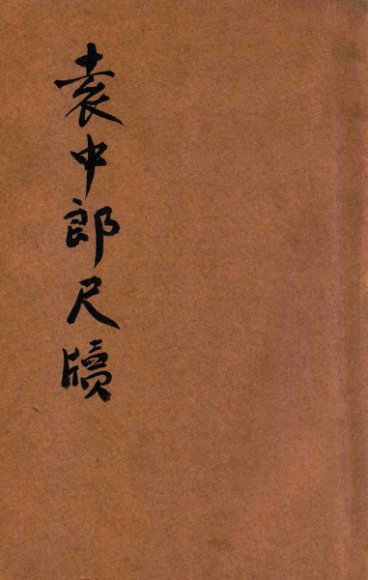 袁中郎尺牘